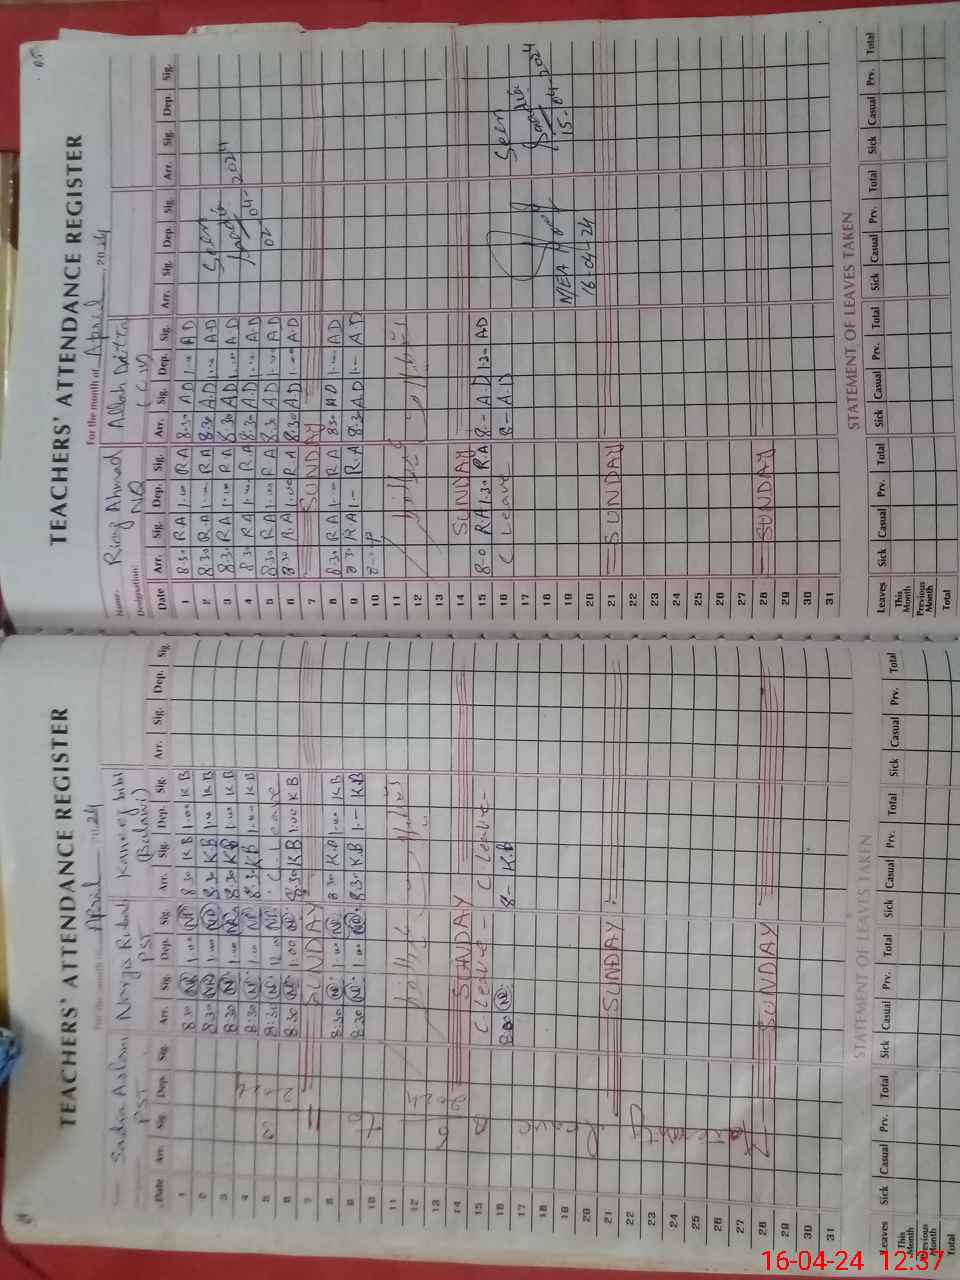 TEACHERS' ATTENDANCE REGISTER
For the month of April 2024
Name: Sadia Aslam Nargis Kaneez bibi
PST PST
Date Arr. Sig. Dep. Sig. Arr. Sig. Dep. Sig. Arr. Sig. Dep. Sig. Arr. Sig. Dep. Sig.
1 8.30 ND 1.00 ND 8.30 K.B 1.00 K B
2 8.30 ND 1.00 ND 8.30 K.B 1.00 K B
3 8.30 ND 1.00 ND 8.30 K.B 1.00 K B
4 8.30 ND 1.00 ND 8.30 K.B 1.00 K B
5 8.30 ND 12.00 ND C. Leave
6 8.30 ND 1.00 ND 8.30 K B 1.00 K B
7 SUNDAY
8 8.30 ND 1.00 ND 8.30 K.B 1.00 K B
9 8.30 ND 1.00 ND 8.30 K.B 1.- K.B
10
11
12
13
14 SUNDAY
15 C. Leave - C. Leave -
16 8.00 ND 8- K.B
17
18
19
20
21 SUNDAY
22
23
24
25
26
27
28 SUNDAY
29
30
31
Maternity Leave
STATEMENT OF LEAVES TAKEN
Leaves Sick Casual Prv. Total Sick Casual Prv. Total Sick Casual Prv. Total Sick Casual Prv. Total
This Month
Previous Month
Total
TEACHERS' ATTENDANCE REGISTER
For the month of April 2024
Name: Riaz Ahmad Allah Ditta
Designation: NQ (C.IV)
Date Arr. Sig. Dep. Sig. Arr. Sig. Dep. Sig. Arr. Sig. Dep. Sig. Arr. Sig. Dep. Sig.
1 8.30 R A 1.00 R A 8.30 A.D 1.00 A D
2 8.30 R.A 1.00 R A 8.30 A.D 1.00 A.D
3 8.30 R A 1.00 R A 8.30 A D 1.00 A D
4 8.30 R A 1.00 R.A 8.30 A.D 1.00 A.D
5 8.30 R A 1.00 R A 8.30 A.D 1.00 A D
6 8.30 R A 1.00 R A 8.30 A.D 1.00 A.D
7 SUNDAY
8 8.30 R A 1.00 R A 8.30 A.D 1.00 A D
9 8.30 R A 1.- R.A 8.30 A D 1.- A D
10
11
12
13
14 SUNDAY
15 8-0 R A 1.30 R A 8- A.D 1.30 A.D
16 C Leave 8- A.D
17
18
19
20
21 SUNDAY
22
23
24
25
26
27
28 SUNDAY
29
30
31
Seen
02-04-2024
Seen
15-04-2024
MEA
16-04-24
STATEMENT OF LEAVES TAKEN
Leaves Sick Casual Prv. Total Sick Casual Prv. Total Sick Casual Prv. Total Sick Casual Prv. Total
This Month
Previous Month
Total
16-04-24 12:37